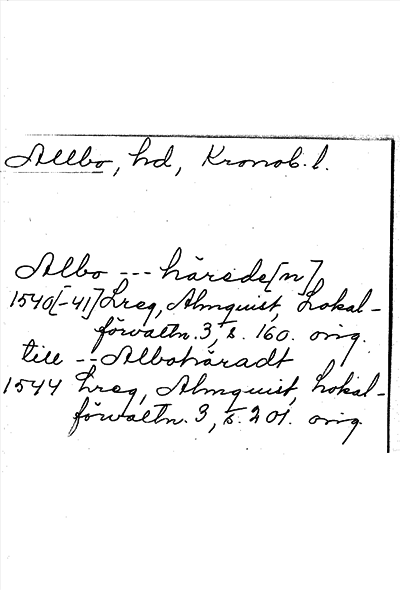 Allbo, hd, Kronob. l.
Albo --- härede[n]
1540[-41] Lreg, Almquist, Lokal-
förvaltn. 3, s. 160. orig.
till -- Alboháradt
1544 Lreg, Almquist, Lokal-
förvaltn. 3, s. 201. orig.